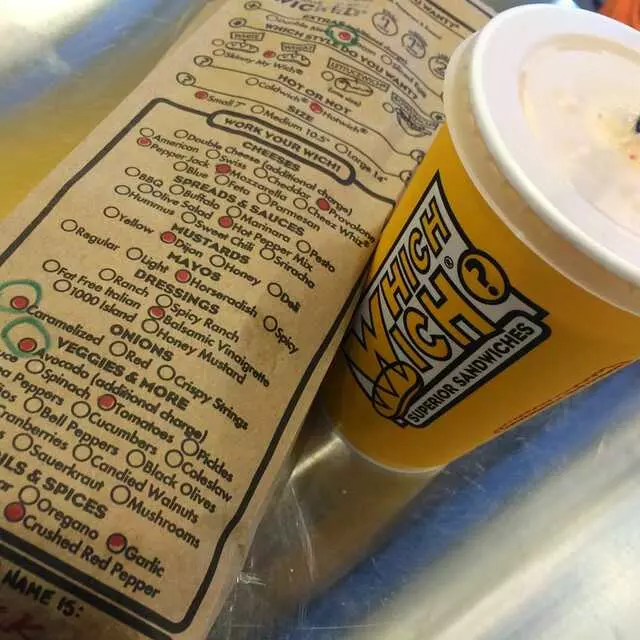 WICKED
EXTRAS
WHICH
YOU WANT
Skinny
HOT OR NOT
Coldwich® Hotwich®
SIZE
Small 7" Medium 10.5" Large 14"
WORK YOUR WICH!
CHEESES
Double Cheese (additional charge)
American Swiss Cheddar
Pepper Jack Mozzarella Cheez Whiz®
Blue Feta Parmesan
SPREADS & SAUCES
BBQ Buffalo Marinara Pesto
Hummus Olive Salad Hot Pepper Mix
Sweet Chili Sriracha
MUSTARDS
Yellow Dijon Honey Deli
MAYOS
Regular Light Horseradish Spicy
DRESSINGS
Ranch Spicy Ranch
Fat Free Italian Balsamic Vinaigrette
1000 Island Honey Mustard
ONIONS
Caramelized Red Crispy Strings
VEGGIES & MORE
Avocado (additional charge)
Spinach Tomatoes Pickles
Peppers Cucumbers Coleslaw
Bell Peppers Black Olives
Cranberries Candied Walnuts
Sauerkraut Mushrooms
OILS & SPICES
Oregano Garlic
Crushed Red Pepper
NAME IS:
WHICH
WICH®
?
SUPERIOR SANDWICHES